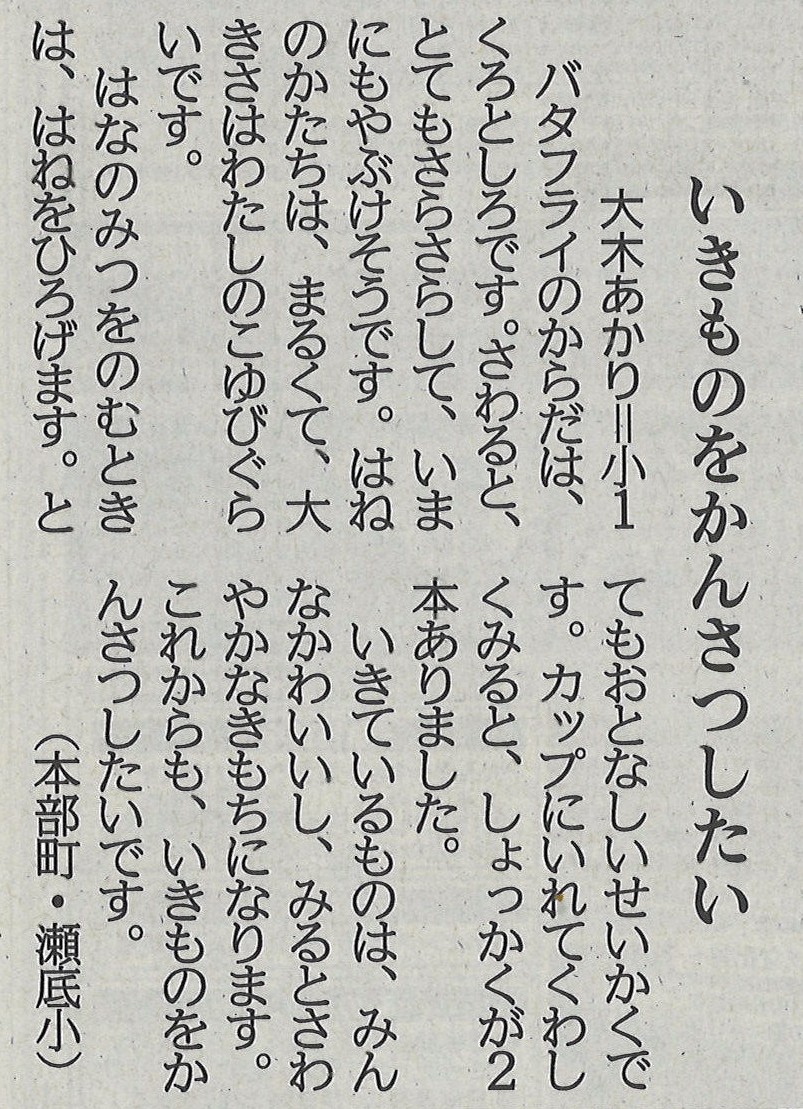 いきものをかんさつしたい
大木あかり＝小1
バタフライのからだは、
くろとしろです。さわると、
とてもさらさらして、いま
にもやぶけそうです。はね
のかたちは、まるくて、大
きさはわたしのこゆびぐら
いです。
はなのみつをのむとき
は、はねをひろげます。と
てもおとなしいせいかくで
す。カップにいれてくわし
くみると、しょっかくが2
本ありました。
いきているものは、みん
なかわいいし、みるとさわ
やかなきもちになります。
これからも、いきものをか
んさつしたいです。
（本部町・瀬底小）